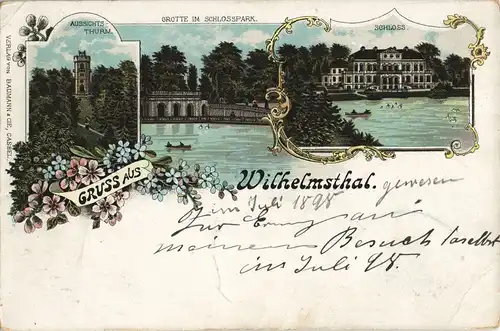 AUSSICHTS-
THURM.
GROTTE IM SCHLOSSPARK.
SCHLOSS.
VERLAG VON BAUMANN & CIE, CASSEL.
GRUSS AUS
Wilhelmsthal. gewesen
im Juli 1898
Zur Erng an
meinen Besuch daselbst
im Juli 98.